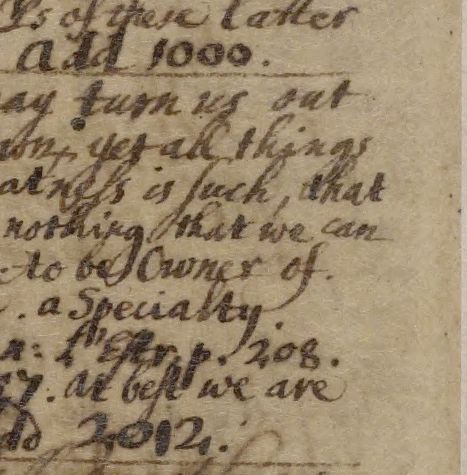 of these latter
add 1000.
may turn us out
yet all things
is such, that
nothing that we can
to be Owner of
. a Specialty.
L'Estr. p. 208.
27. at best we are
2012.